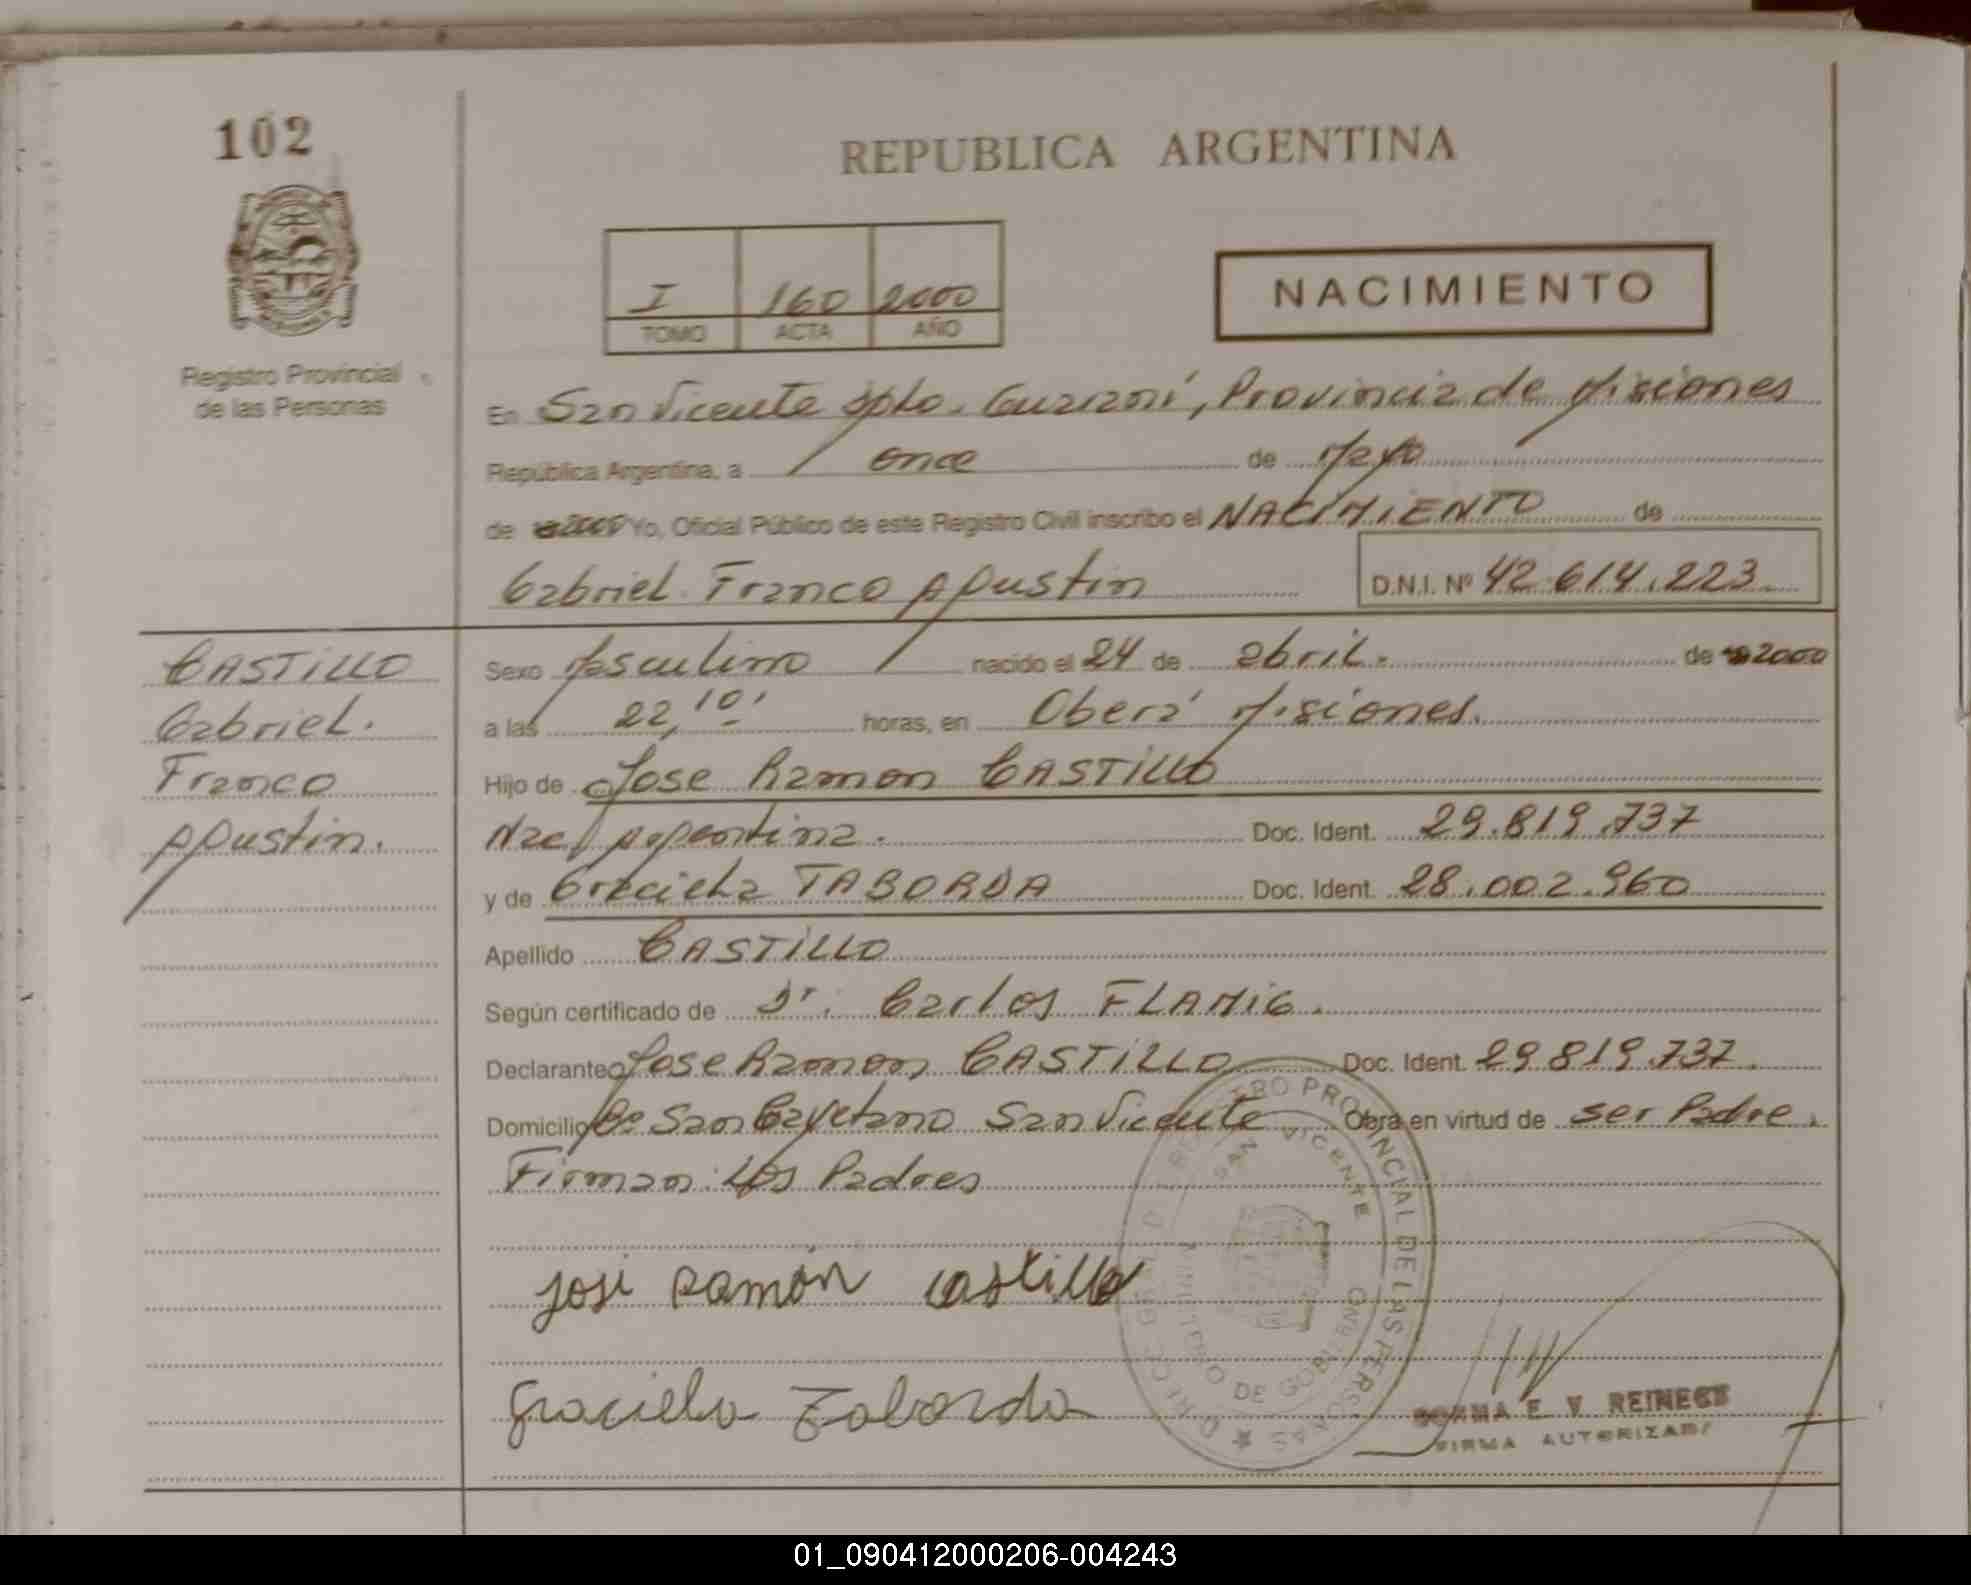 102
REPUBLICA ARGENTINA
I 160 2000
TOMO ACTA AÑO
NACIMIENTO
Registro Provincial
de las Personas
En San Vicente Dpto. Guaraní, Provincia de Misiones
República Argentina, a once de Mayo
de 2000 Yo, Oficial Público de este Registro Civil inscribo el NACIMIENTO de
Gabriel Franco Agustin D.N.I. Nº 42.614.223
CASTILLO
Gabriel.
Franco
Agustin.
Sexo Masculino nacido el 24 de abril. de 2000
a las 22,10' horas, en Oberá Misiones.
Hijo de Jose Ramon CASTILLO
Nac. Argentina. Doc. Ident. 29.819.737
y de Graciela TABORDA Doc. Ident. 28.002.960
Apellido CASTILLO
Según certificado de Dr. Carlos FLAMIG.
Declarante Jose Ramon CASTILLO Doc. Ident. 29.819.737.
Domicilio Bº San Cayetano San Vicente Obra en virtud de ser Padre.
Firman: Los Padres
José Ramón Castillo
Graciela Taborda
REGISTRO PROVINCIAL DE LAS PERSONAS
SAN VICENTE
MINISTERIO DE GOBIERNO
NORMA E. V. REINECK
FIRMA AUTORIZADA
01_090412000206-004243